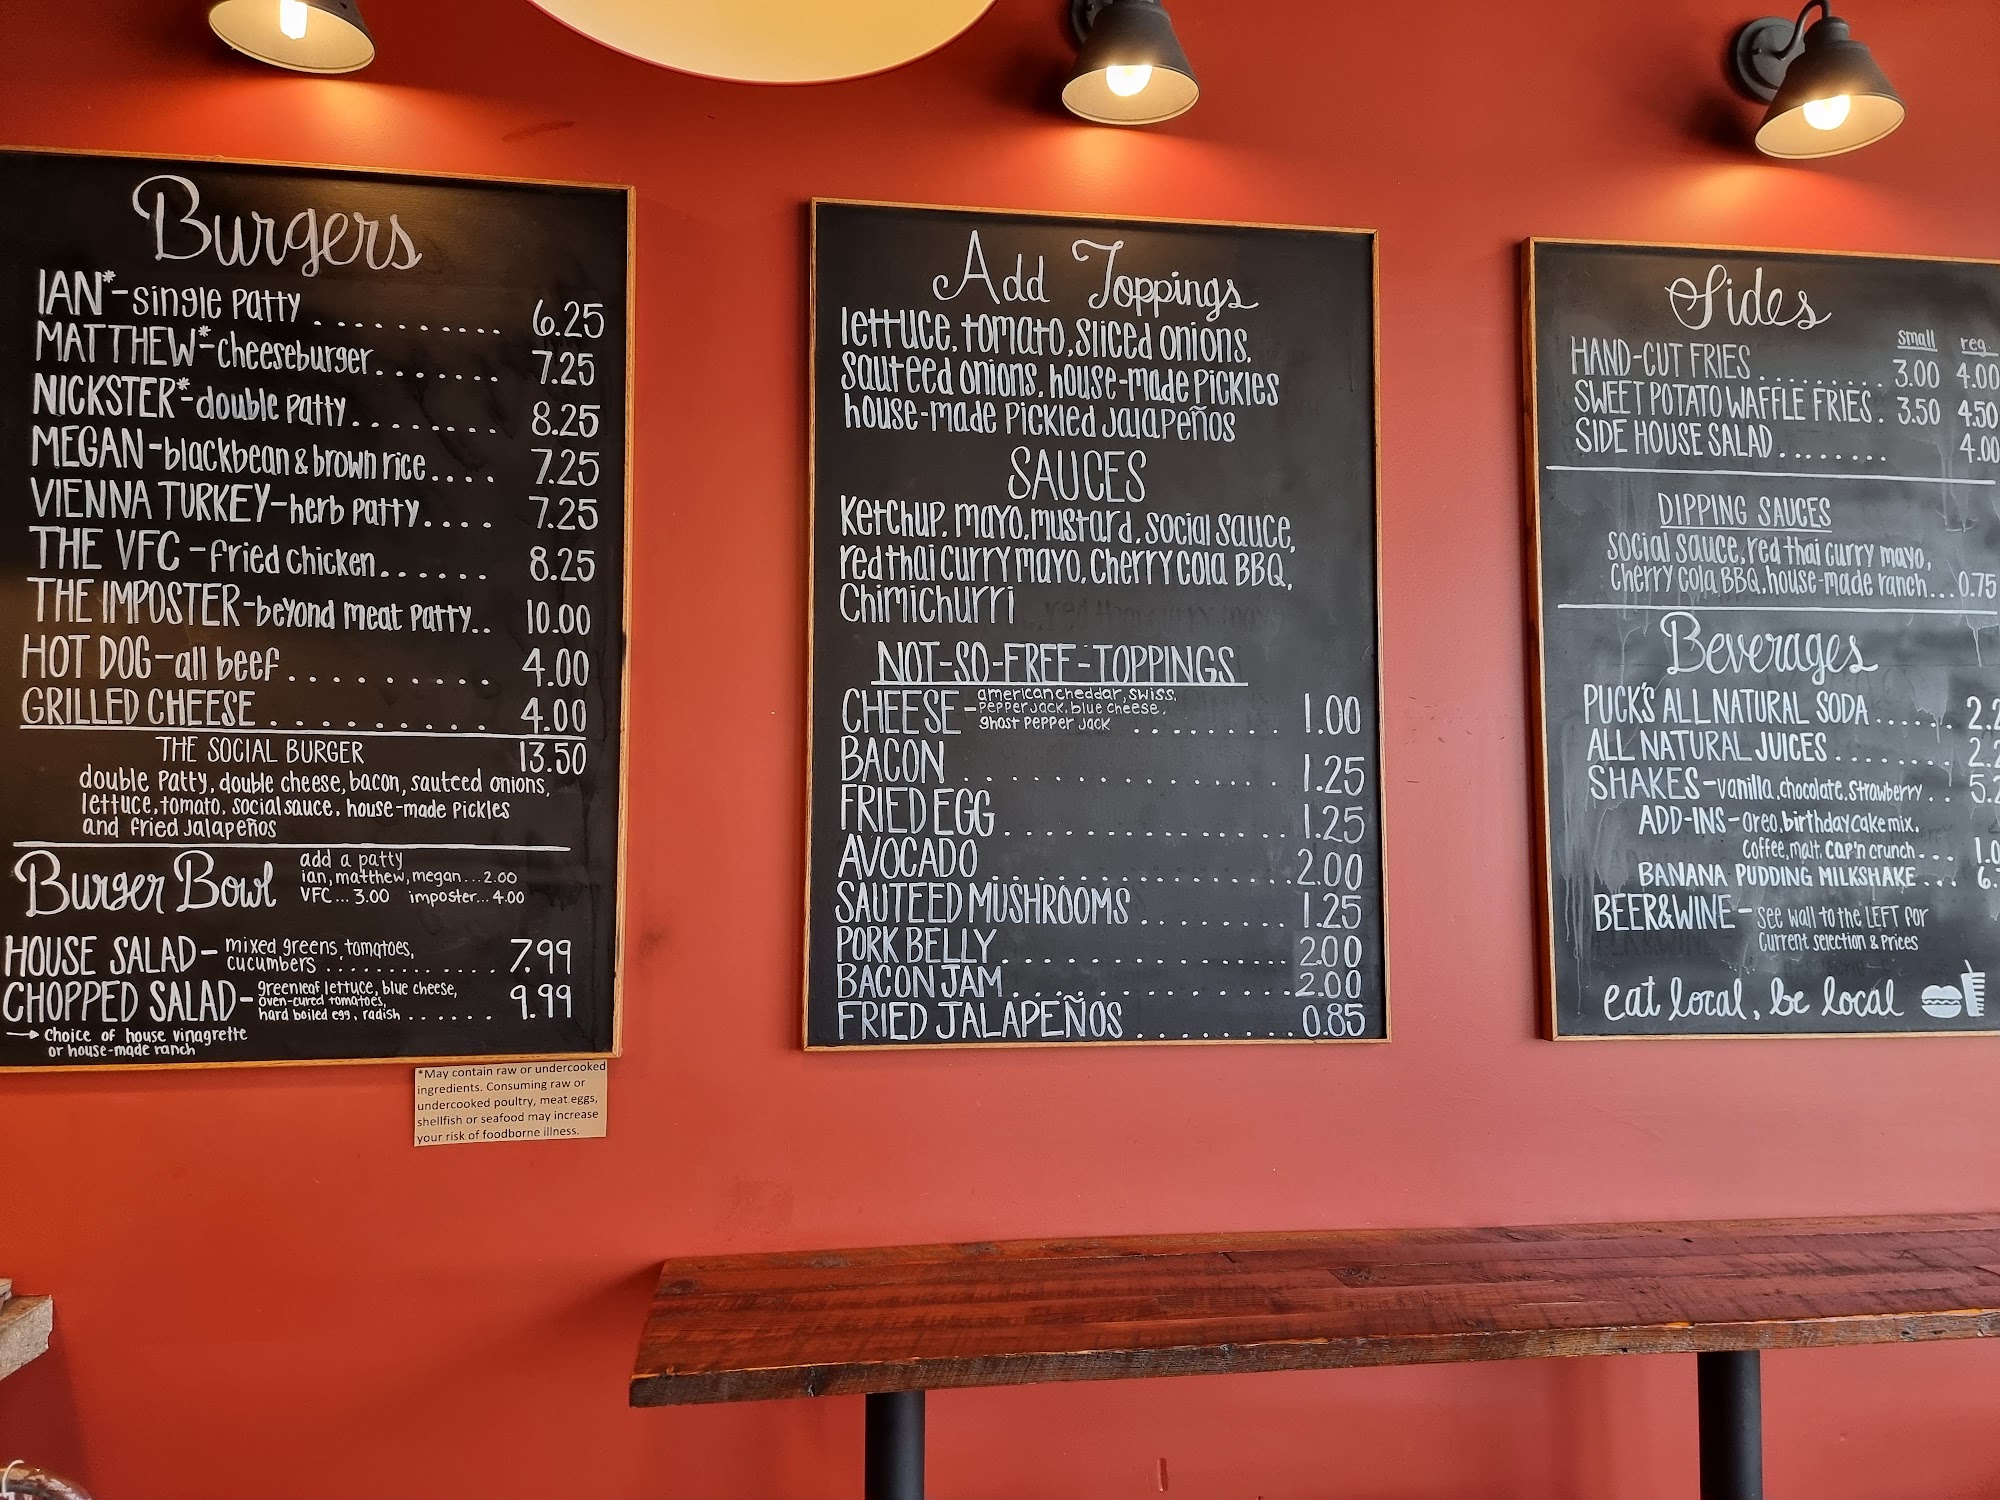 Burgers
IAN*-single patty .......... 6.25
MATTHEW*-cheeseburger....... 7.25
NICKSTER*-double patty........ 8.25
MEGAN-blackbean & brown rice.... 7.25
VIENNA TURKEY-herb patty.... 7.25
THE VFC - fried chicken...... 8.25
THE IMPOSTER-beyond meat patty.. 10.00
HOT DOG-all beef......... 4.00
GRILLED CHEESE .......... 4.00
THE SOCIAL BURGER 13.50
double patty, double cheese, bacon, sauteed onions,
lettuce, tomato, social sauce, house-made pickles
and fried jalapeños
Burger Bowl
add a patty
ian, matthew, megan...2.00
VFC... 3.00 imposter...4.00
HOUSE SALAD- mixed greens, tomatoes,
cucumbers ............. 7.99
CHOPPED SALAD- greenleaf lettuce, blue cheese,
oven-cured tomatoes,
hard boiled egg, radish ...... 9.99
→ choice of house vinagrette
or house-made ranch
*May contain raw or undercooked
ingredients. Consuming raw or
undercooked poultry, meat eggs,
shellfish or seafood may increase
your risk of foodborne illness.
Add Toppings
lettuce, tomato, sliced onions,
sauteed onions, house-made pickles
house-made pickled jalapeños
SAUCES
ketchup, mayo, mustard, social sauce,
red thai curry mayo, cherry cola BBQ,
chimichurri
NOT-SO-FREE-TOPPINGS
CHEESE- american cheddar, swiss,
pepper jack, blue cheese,
ghost pepper jack ........ 1.00
BACON .............. 1.25
FRIED EGG............. 1.25
AVOCADO .............. 2.00
SAUTEED MUSHROOMS ....... 1.25
PORK BELLY............. 2.00
BACON JAM ............ 2.00
FRIED JALAPEÑOS ........ 0.85
Sides
small reg.
HAND-CUT FRIES ......... 3.00 4.00
SWEET POTATO WAFFLE FRIES. 3.50 4.50
SIDE HOUSE SALAD........ 4.00
DIPPING SAUCES
social sauce, red thai curry mayo,
cherry cola BBQ, house-made ranch...0.75
Beverages
PUCK'S ALL NATURAL SODA......
ALL NATURAL JUICES........
SHAKES-vanilla, chocolate, strawberry..
ADD-INS-oreo, birthday cake mix,
coffee, malt, cap'n crunch...
BANANA PUDDING MILKSHAKE...
BEER&WINE- see wall to the LEFT for
current selection & prices
eat local, be local